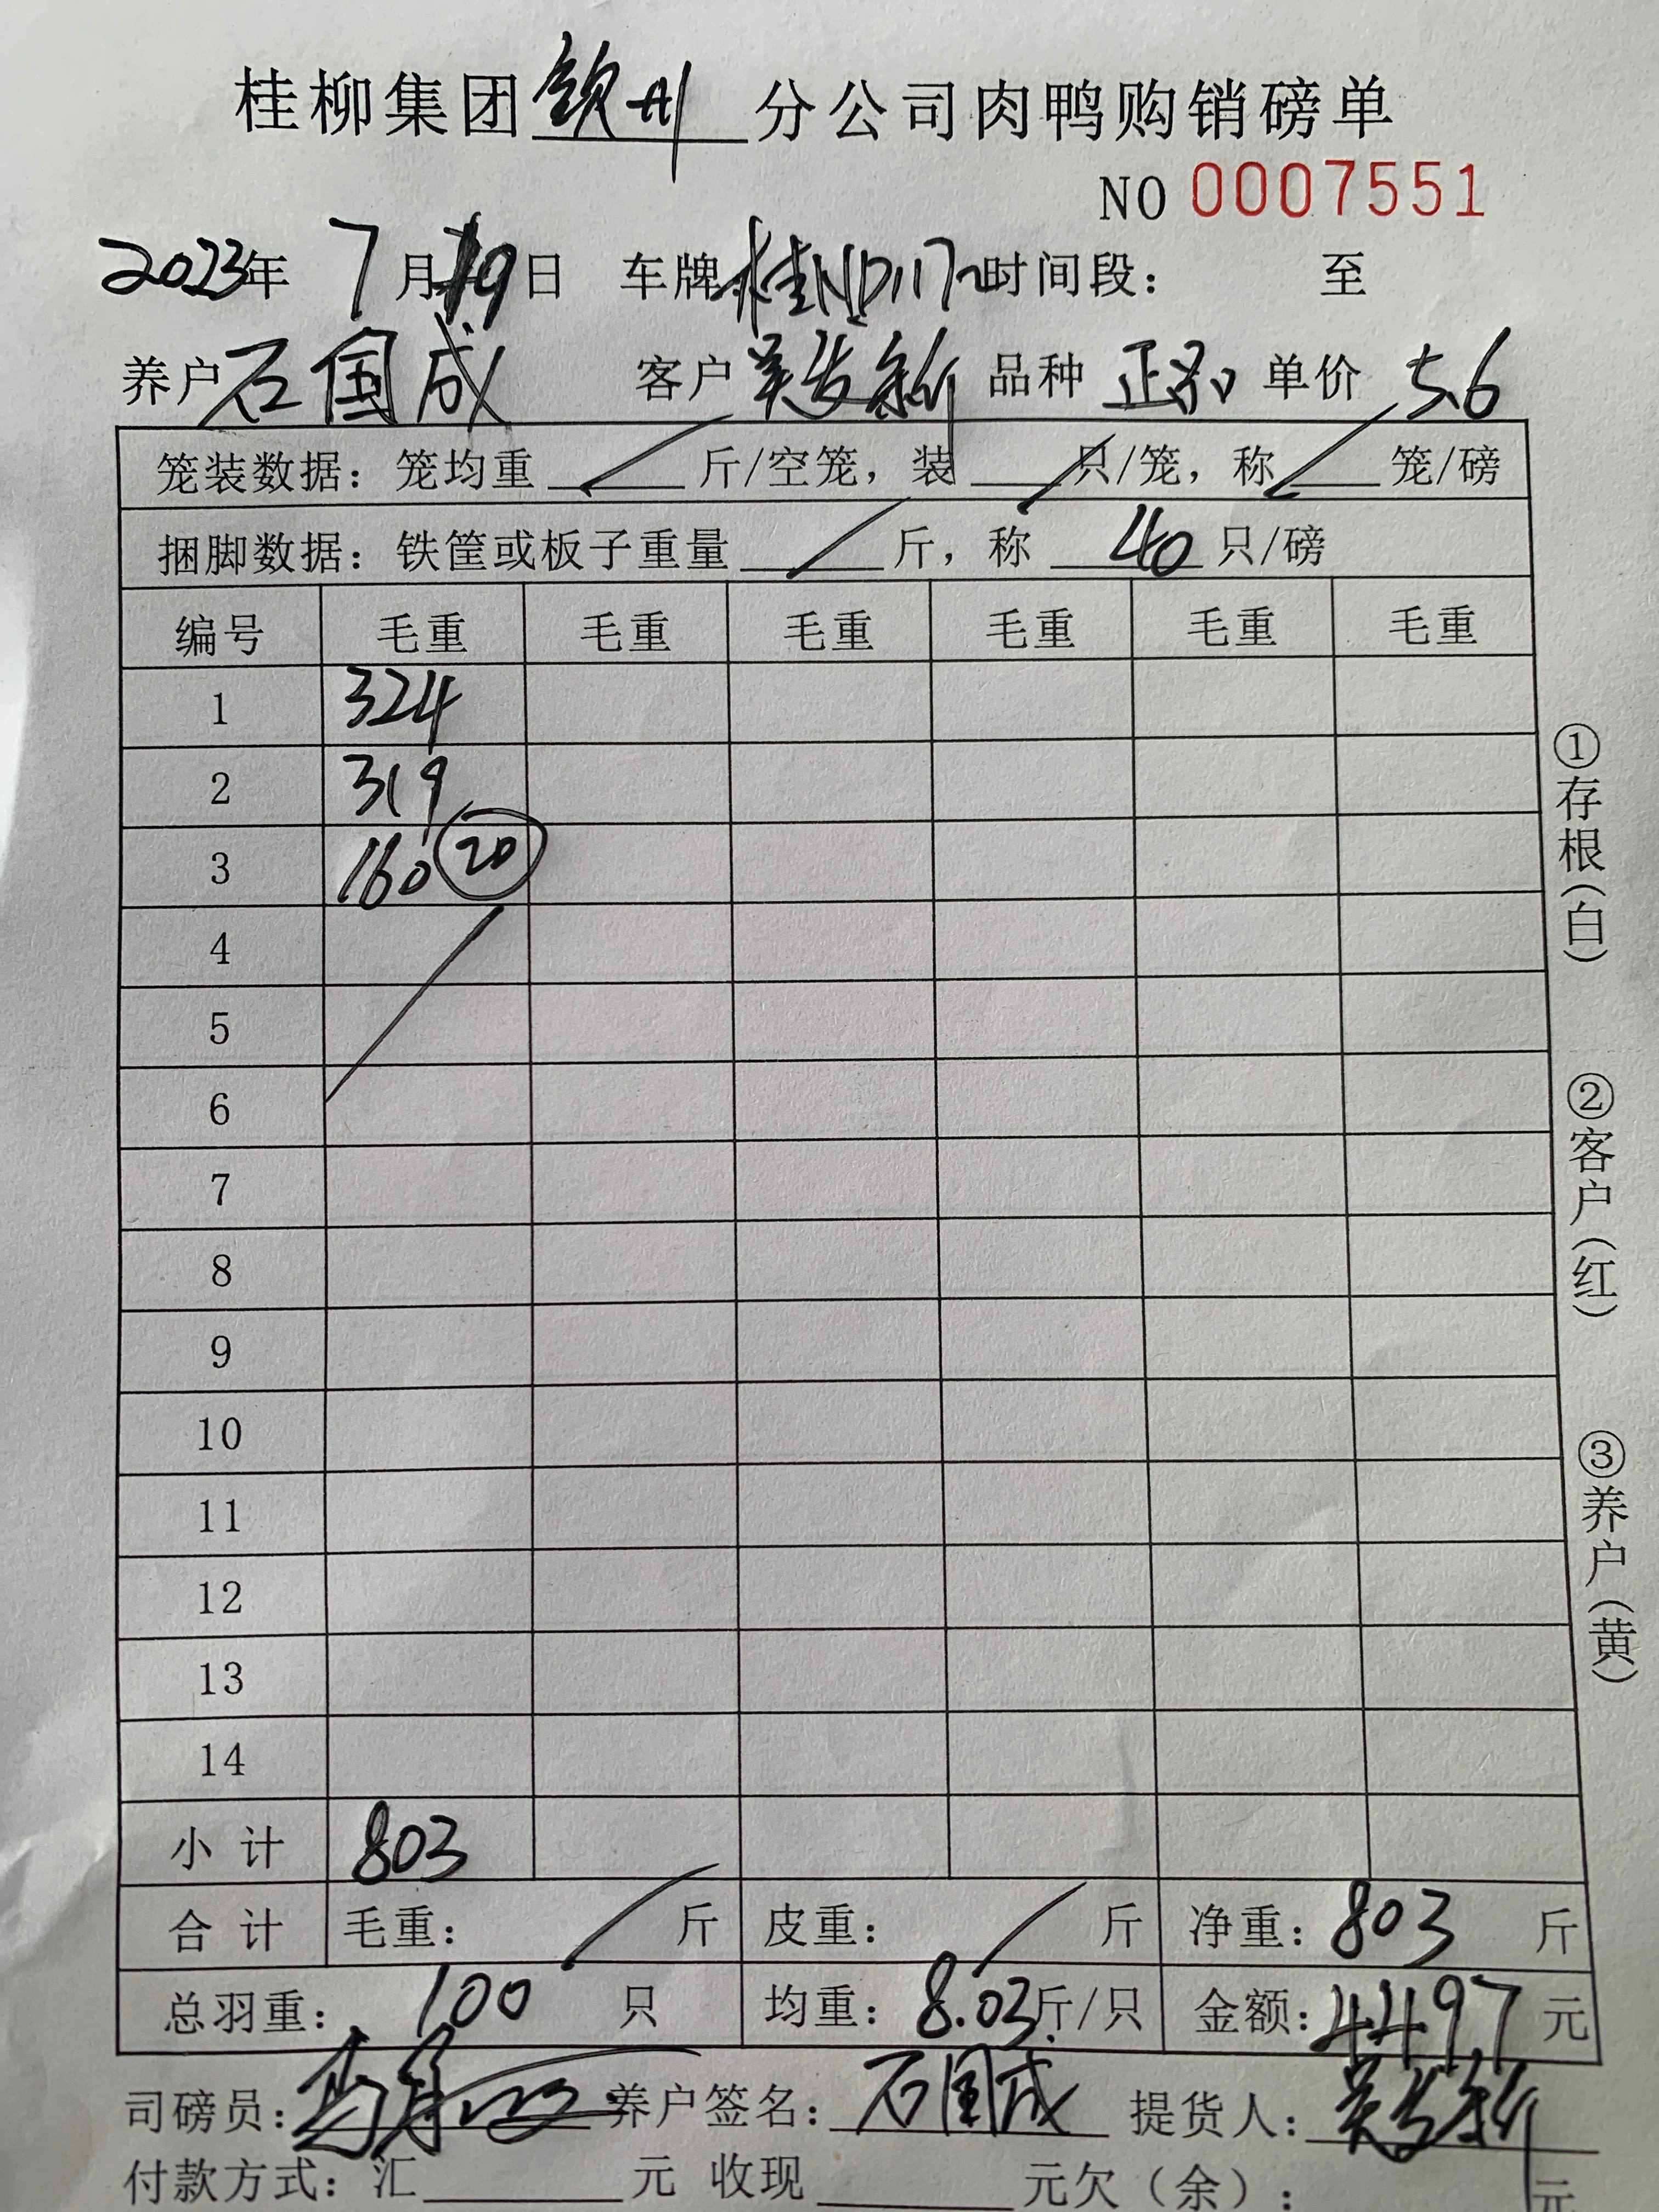 桂柳集团 钦州 分公司肉鸭购销磅单
NO 0007551
2023年 7月19日 车牌 桂ND1172 时间段: 至
养户 石国成 客户 吴发新 品种 正 单价 5.6
笼装数据: 笼均重 斤/空笼, 装 只/笼, 称 笼/磅
捆脚数据: 铁筐或板子重量 斤, 称 40 只/磅
编号 毛重 毛重 毛重 毛重 毛重 毛重
1 324
2 319
3 160 20
4
5
6
7
8
9
10
11
12
13
14
小计 803
合计 毛重: 斤 皮重: 斤 净重: 803 斤
总羽重: 100 只 均重: 8.03 斤/只 金额: 4497 元
司磅员: 养户签名: 石国成 提货人: 吴发新
付款方式: 汇 元 收现 元欠(余): 元
①存根(白)
②客户(红)
③养户(黄)